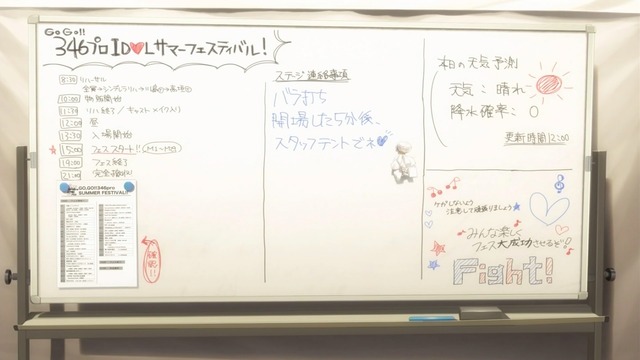 Go Go!!
346プロ IDOLサマーフェスティバル!
8:30 リハーサル
10:00 物販開始
11:30 リハ終了/キャストメイク入り
12:00 昼
13:30 入場開始
15:00 フェススタート!!
19:00 フェス終了
21:00 完全撤収
GO,GO!!346pro
SUMMER FESTIVAL!!
ステージ連絡事項
バラ打ち
開場した5分後、
スタッフテントでネ
本日の天気予測
天気:晴れ
降水確率:0
更新時間12:00
ケガしないよう
注意して頑張りましょう
みんな楽しく
フェス大成功させるぞ!
Fight!